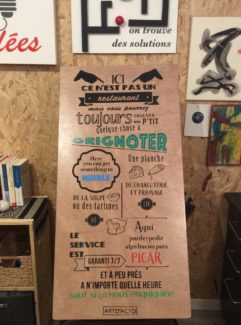 lées
on trouve
des solutions
ICI
CE N'EST PAS UN
restaurant
mais vous pouvez
toujours TROUVER UN P'TIT
quelque chose à
GRIGNOTER
Here you can get something to NIBBLE
Une planche
DE CHARCUTERIE ET FROMAGE
DE LA SOUPE
ou des tartines
Aqui
puedes pedir
algo bueno para
PICAR
LE SERVICE EST
GARANTI 7/7
ET À PEU PRÈS
À N'IMPORTE QUELLE HEURE
ARTEFACTO